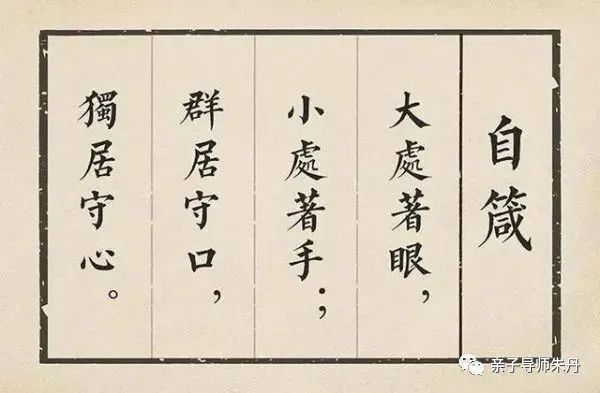 自箴
大處著眼，
小處著手；
群居守口，
獨居守心。
亲子导师朱丹